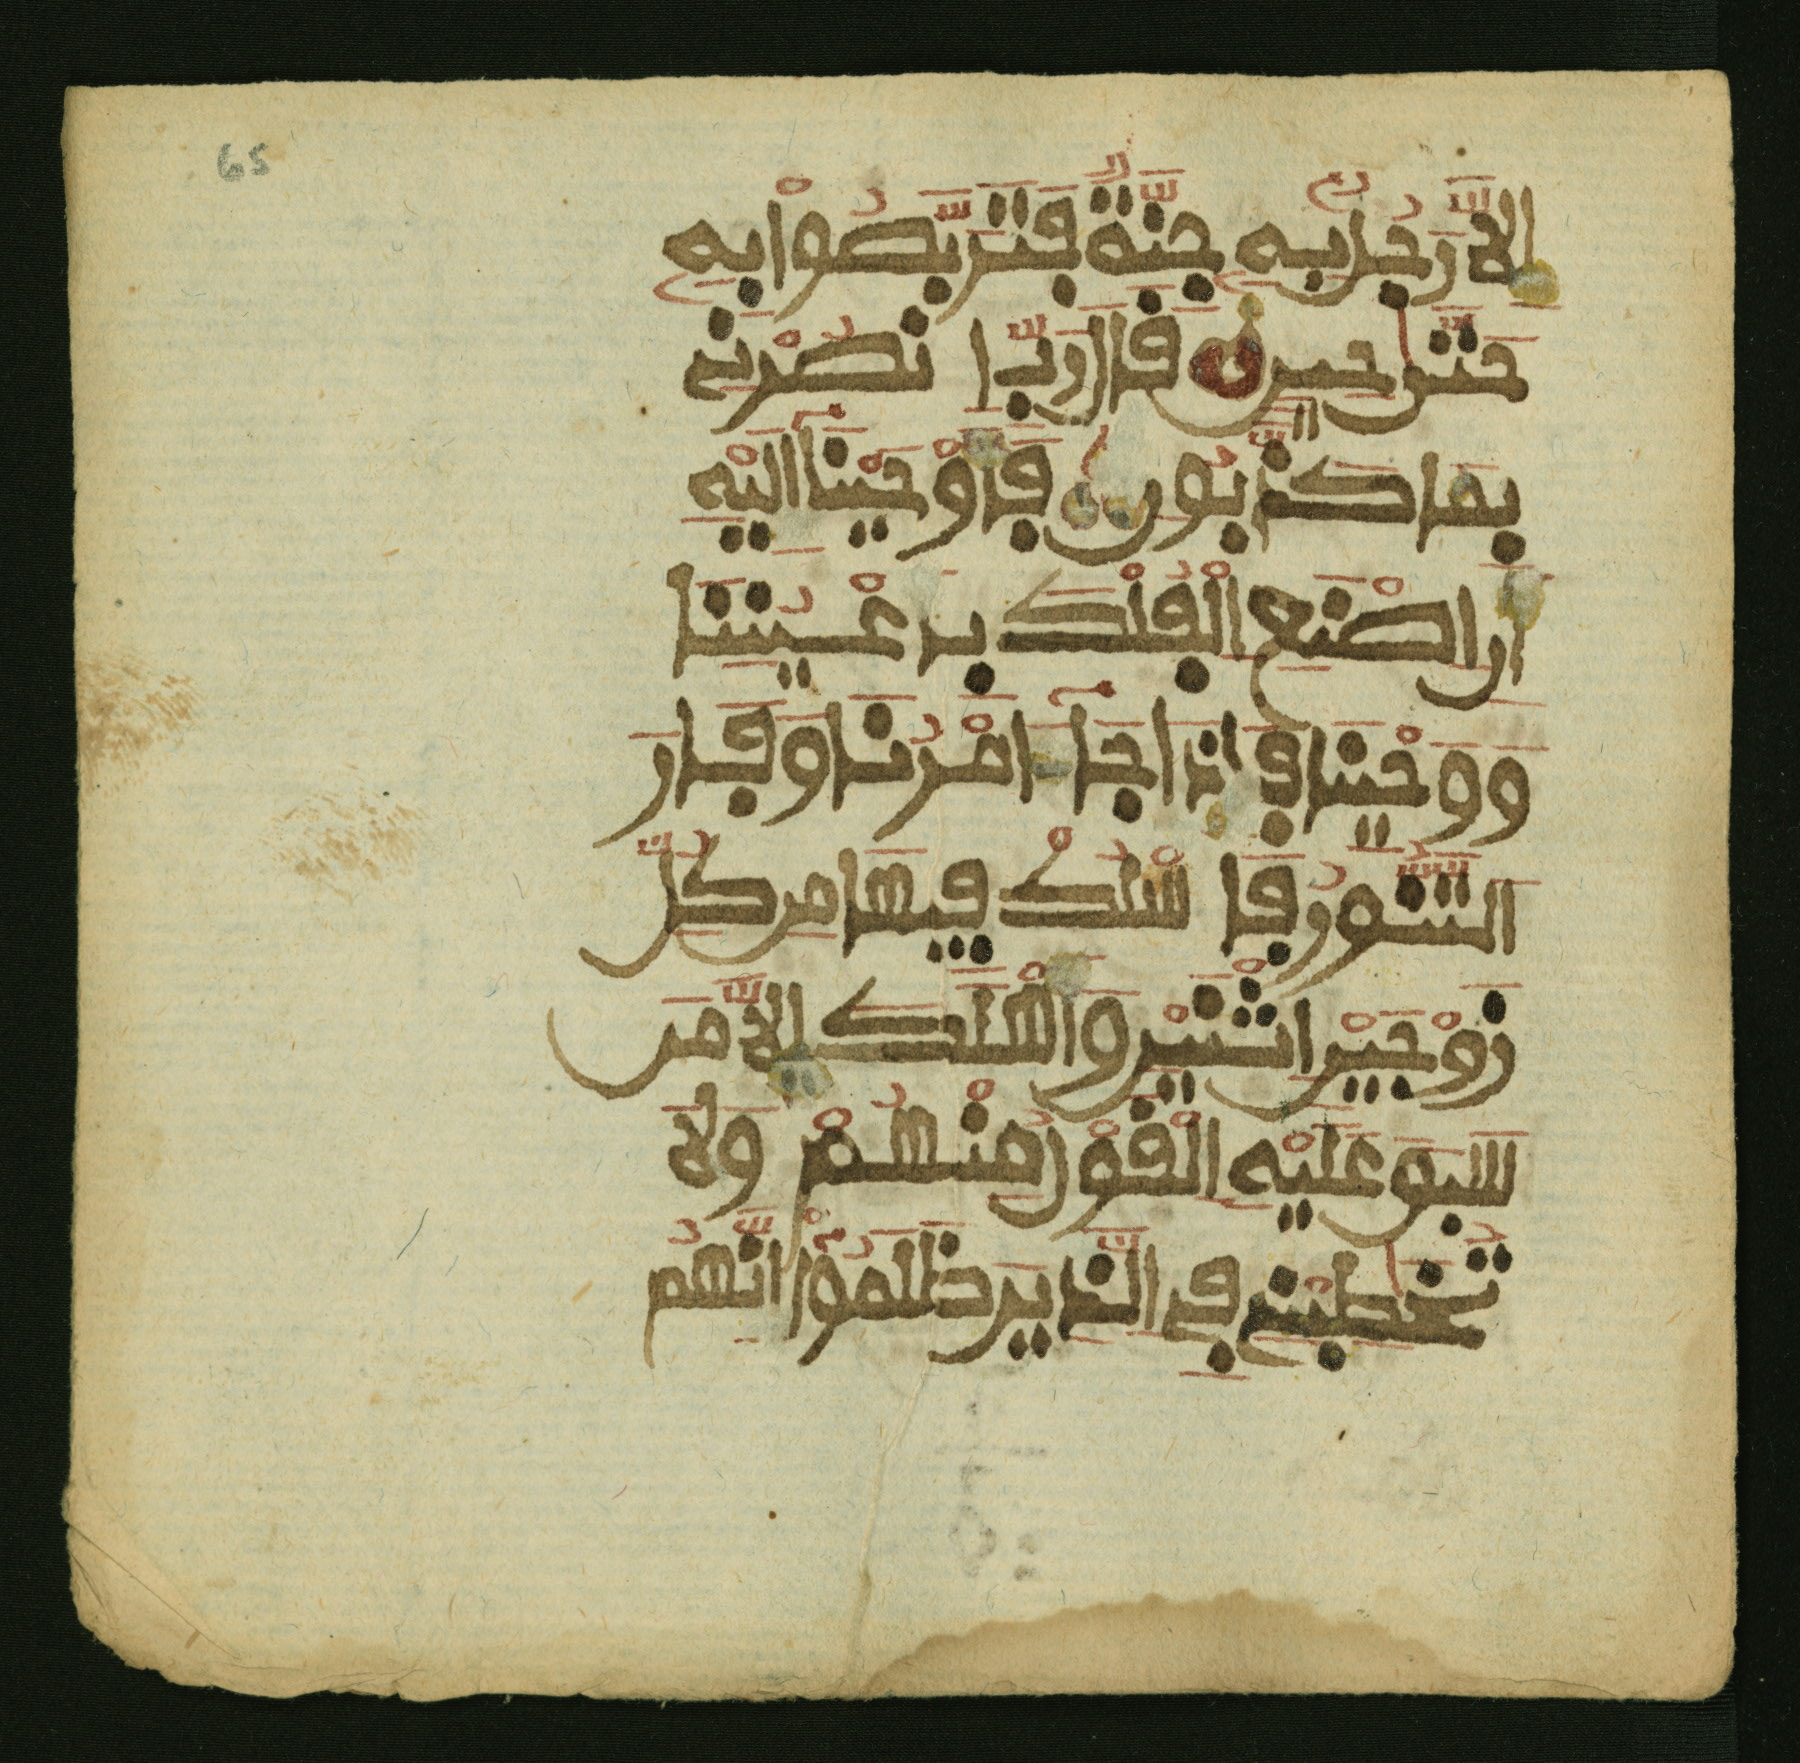 65
إِلَّا رَجُلٌۢ بِهِۦ جِنَّةٌ فَتَرَبَّصُوا۟ بِهِۦ
حَتَّىٰ حِينٍ قَالَ رَبِّ ٱنصُرْنِى
بِمَا كَذَّبُونِ فَأَوْحَيْنَآ إِلَيْهِ
أَنِ ٱصْنَعِ ٱلْفُلْكَ بِأَعْيُنِنَا
وَوَحْيِنَا فَإِذَا جَآءَ امْرُنَا وَفَارَ
ٱلتَّنُّورُ فَٱسْلُكْ فِيهَا مِن كُلِّ
زَوْجَيْنِ ٱثْنَيْنِ وَأَهْلَكَ إِلَّا مَن
سَبَقَ عَلَيْهِ ٱلْقَوْلُ مِنْهُمْ وَلَا
تُخَٰطِبْنِى فِى ٱلَّذِينَ ظَلَمُوٓا۟ إِنَّهُم